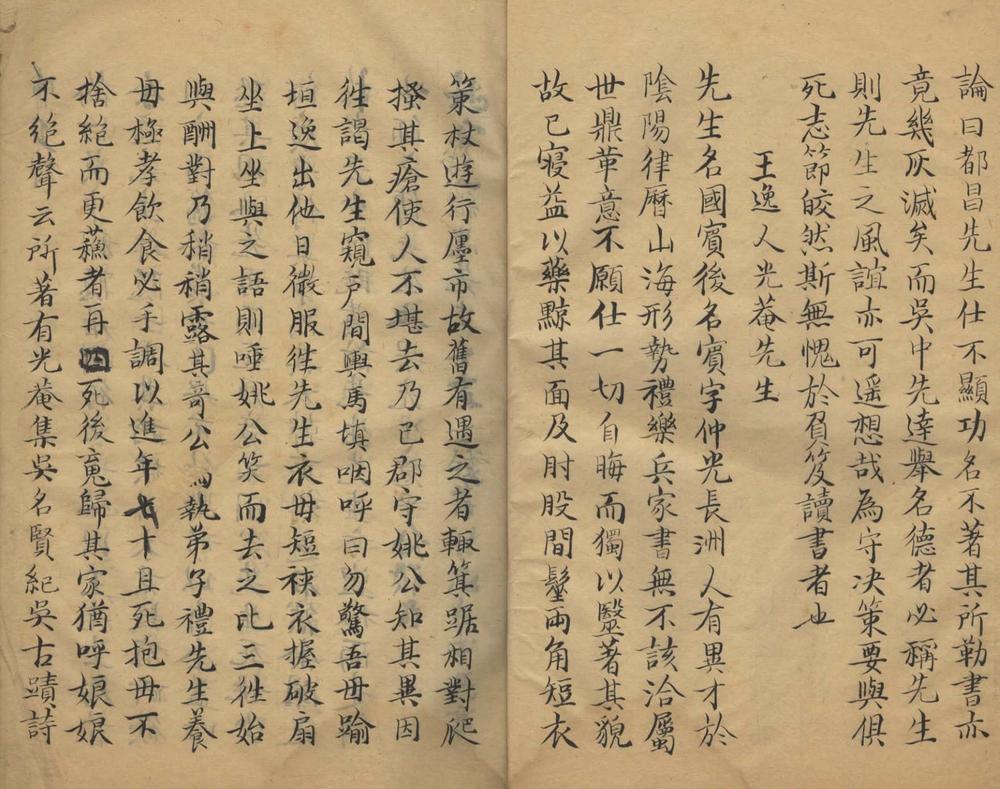 論曰都昌先生仕不顯功名不著其所勒書亦
竟幾灰滅矣而吳中先達舉名德者必稱先生
則先生之風誼亦可遥想哉為守决策要與俱
死志節皎然斯無愧於負笈讀書者也
王逸人光菴先生
先生名國賓後名賓字仲光長洲人有異才於
陰陽律曆山海形勢禮樂兵家書無不該洽屬
世鼎革意不願仕一切自晦而獨以毉著其貌
故已寢益以藥黥其面及肘股間髽兩角短衣
策杖遊行廛市故舊有遇之者輙箕踞相對爬
搔其瘡使人不堪去乃已郡守姚公知其異因
徃謁先生窺戶間輿馬填咽呼曰勿驚吾母踰
垣逸出他日微服徃先生衣毋短裌衣握破扇
坐上坐與之語則唾姚公笑而去之比三徃始
與酬對乃稍稍露其竒公執弟子禮先生養
毋極孝飲食必手調以進年七十且死抱毋不
捨絕而更蘓者再死後䰟歸其家猶呼娘娘
不絕聲云所著有光菴集吳名賢紀吳古蹟詩